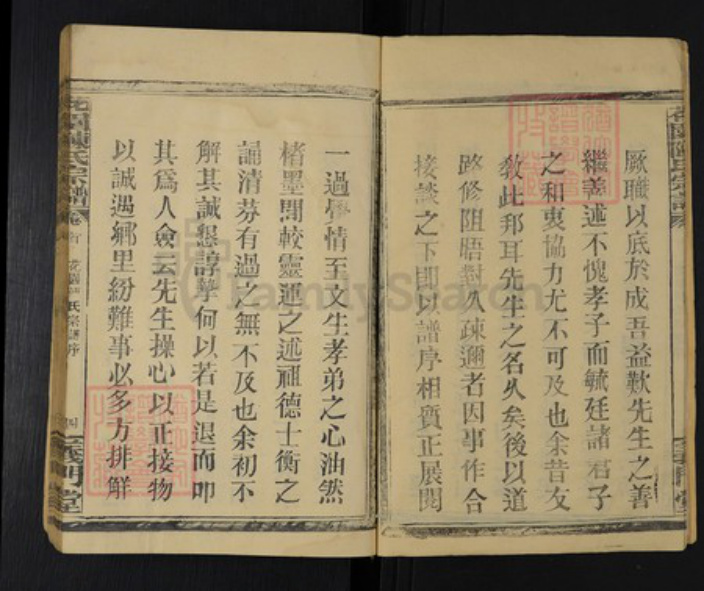 厥職以底於成吾益歎先生之善
繼善述不愧孝子而毓廷諸君子
之和衷協力尤不可及也余昔友
教此邦耳先生之名久矣後以道
路修阻晤對久疎邇者因事作合
接談之下即以譜序相質正展閱
一過覺情至文生孝弟之心油然
楮墨間較靈運之述祖德士衡之
誦清芬有過之無不及也余初不
解其誠懇諄摯何以若是退而叩
其為人僉云先生操心以正接物
以誠遇鄉里紛難事必多方排解
花園陳氏宗譜 卷首 花園陳氏宗譜序 四 義門堂
FamilySearch